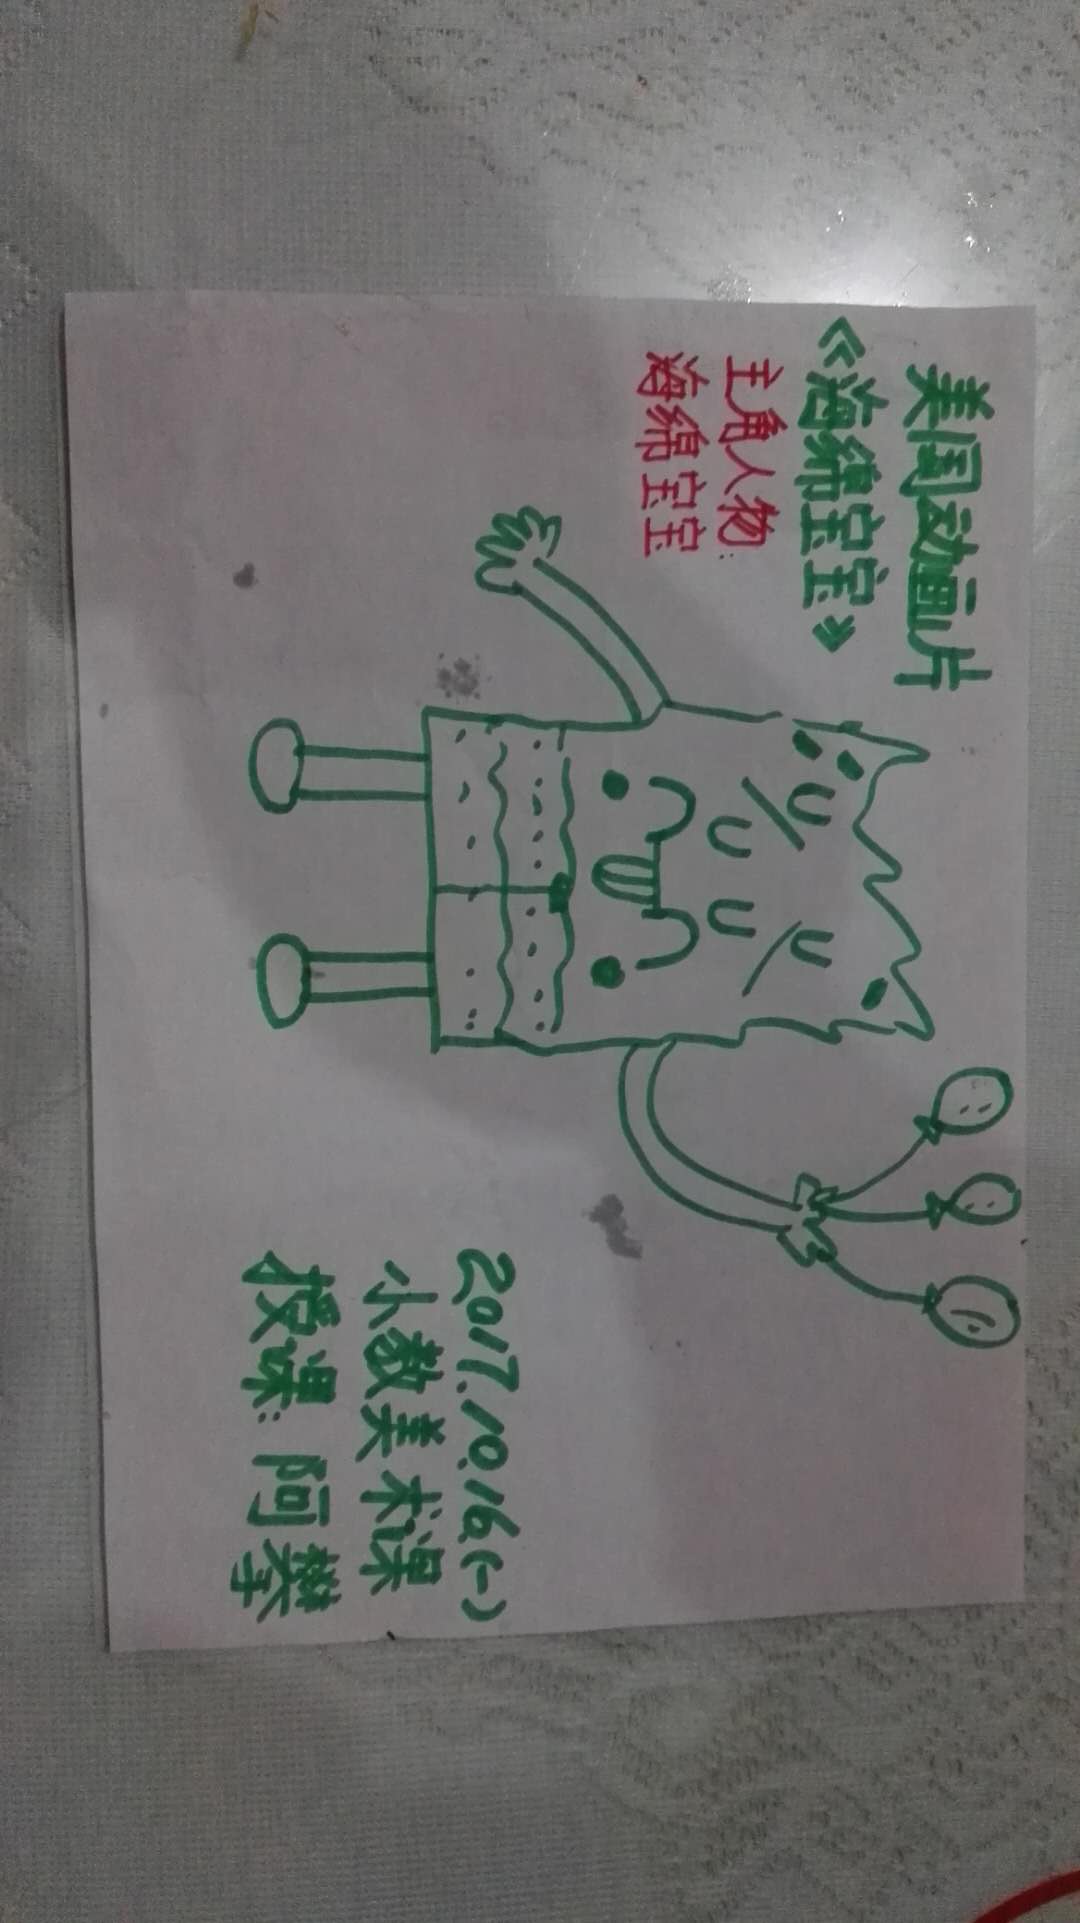 美国动画片
《海绵宝宝》
主角人物:
海绵宝宝
2017.10.16(一)
小教美术课
授课: 阿